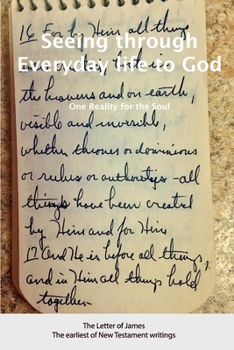 16 For by Him all things
Seeing through
Everyday life to God
the heavens and on earth,
One Reality for the Soul
visible and invisible,
whether thrones or dominions
or rulers or authorities - all
things have been created
by Him and for Him
17 and He is before all things,
and in Him all things hold
together
The Letter of James
The earliest of New Testament writings